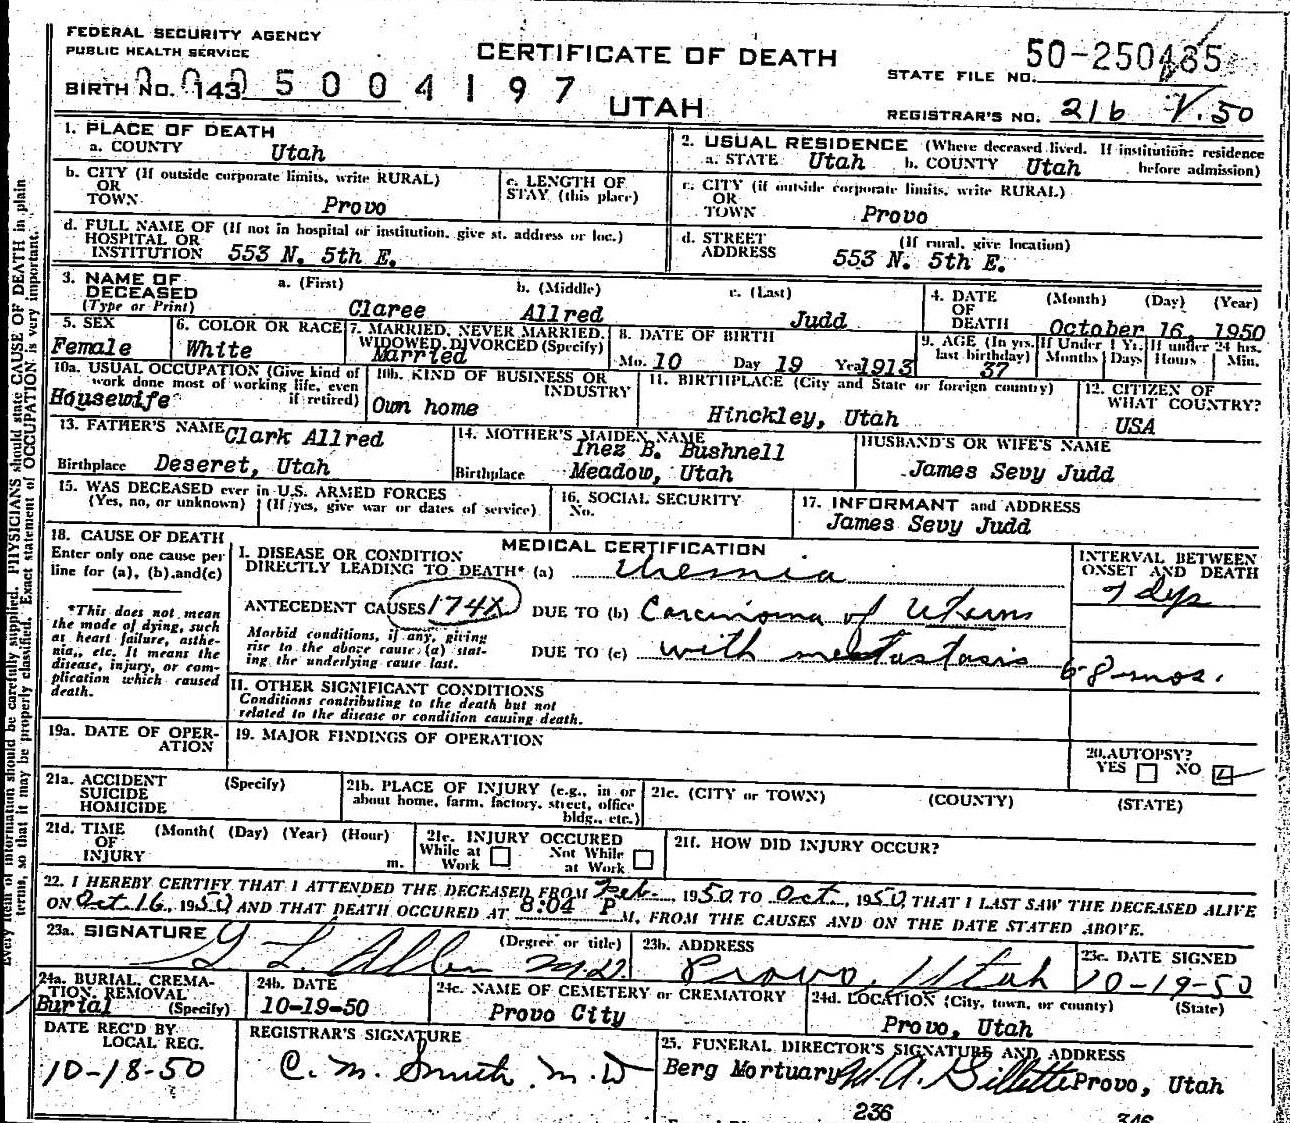 FEDERAL SECURITY AGENCY
PUBLIC HEALTH SERVICE
CERTIFICATE OF DEATH
UTAH
BIRTH NO. 143 5 0 0 4 1 9 7
STATE FILE NO. 50-250435
REGISTRAR'S NO. 216 V.50
1. PLACE OF DEATH
a. COUNTY Utah
2. USUAL RESIDENCE (Where deceased lived. If institution: residence before admission)
a. STATE Utah b. COUNTY Utah
b. CITY (If outside corporate limits, write RURAL)
OR
TOWN Provo
c. LENGTH OF
STAY (this place)
c. CITY (if outside corporate limits, write RURAL)
OR
TOWN Provo
d. FULL NAME OF (If not in hospital or institution, give st. address or loc.)
HOSPITAL OR
INSTITUTION 553 N. 5th E.
d. STREET (If rural, give location)
ADDRESS 553 N. 5th E.
3. NAME OF
DECEASED
(Type or Print)
a. (First) b. (Middle) c. (Last)
Claree Allred Judd
4. DATE (Month) (Day) (Year)
OF
DEATH October 16, 1950
5. SEX
Female
6. COLOR OR RACE
White
7. MARRIED, NEVER MARRIED,
WIDOWED, DIVORCED (Specify)
Married
8. DATE OF BIRTH
Mo. 10 Day 19 Year 1913
9. AGE (In yrs. last birthday) 37
If Under 1 Yr. Months Days
If under 24 hrs. Hours Min.
10a. USUAL OCCUPATION (Give kind of
work done most of working life, even
if retired)
Housewife
10b. KIND OF BUSINESS OR
INDUSTRY
Own home
11. BIRTHPLACE (City and State or foreign country)
Hinckley, Utah
12. CITIZEN OF
WHAT COUNTRY?
USA
13. FATHER'S NAME Clark Allred
Birthplace Deseret, Utah
14. MOTHER'S MAIDEN NAME
Inez B. Bushnell
Birthplace Meadow, Utah
HUSBAND'S OR WIFE'S NAME
James Sevy Judd
15. WAS DECEASED ever in U.S. ARMED FORCES
(Yes, no, or unknown) (If yes, give war or dates of service)
16. SOCIAL SECURITY
No.
17. INFORMANT and ADDRESS
James Sevy Judd
18. CAUSE OF DEATH
Enter only one cause per
line for (a), (b), and (c)
*This does not mean
the mode of dying, such
as heart failure, asthe-
nia, etc. It means the
disease, injury, or com-
plication which caused
death.
MEDICAL CERTIFICATION
I. DISEASE OR CONDITION
DIRECTLY LEADING TO DEATH* (a) Uremia
ANTECEDENT CAUSES 174X DUE TO (b) Carcinoma of Uterus
Morbid conditions, if any, giving
rise to the above cause (a) stat-
ing the underlying cause last.
DUE TO (c) with metastasis
INTERVAL BETWEEN
ONSET AND DEATH
7 dys
6-8 mos.
II. OTHER SIGNIFICANT CONDITIONS
Conditions contributing to the death but not
related to the disease or condition causing death.
19a. DATE OF OPER-
ATION
19. MAJOR FINDINGS OF OPERATION
20. AUTOPSY?
YES NO
21a. ACCIDENT (Specify)
SUICIDE
HOMICIDE
21b. PLACE OF INJURY (e.g., in or
about home, farm, factory, street, office
bldg., etc.)
21c. (CITY or TOWN) (COUNTY) (STATE)
21d. TIME (Month( (Day) (Year) (Hour)
OF
INJURY m.
21e. INJURY OCCURED
While at Work Not While at Work
21f. HOW DID INJURY OCCUR?
22. I HEREBY CERTIFY THAT I ATTENDED THE DECEASED FROM Feb., 1950 TO Oct., 1950, THAT I LAST SAW THE DECEASED ALIVE
ON Oct 16, 1950 AND THAT DEATH OCCURED AT 8:04 P M, FROM THE CAUSES AND ON THE DATE STATED ABOVE.
23a. SIGNATURE (Degree or title)
G L Allen M.D.
23b. ADDRESS
Provo, Utah
23c. DATE SIGNED
10-19-50
24a. BURIAL, CREMA-
TION, REMOVAL
Burial (Specify)
24b. DATE
10-19-50
24c. NAME OF CEMETERY or CREMATORY
Provo City
24d. LOCATION (City, town, or county) (State)
Provo, Utah
DATE REC'D BY
LOCAL REG.
10-18-50
REGISTRAR'S SIGNATURE
C. M. Smith, M.D
25. FUNERAL DIRECTOR'S SIGNATURE AND ADDRESS
Berg Mortuary W. A. Gillette Provo, Utah
236
346
Every item of information should be carefully supplied. PHYSICIANS should state CAUSE OF DEATH in plain
terms, so that it may be properly classified. Exact statement of OCCUPATION is very important.